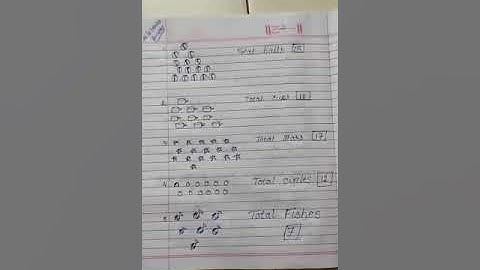 Total balls 15
2. Total cups 10
3. Total stars 17
4. Total cycles 12
5. Total Fishes
7